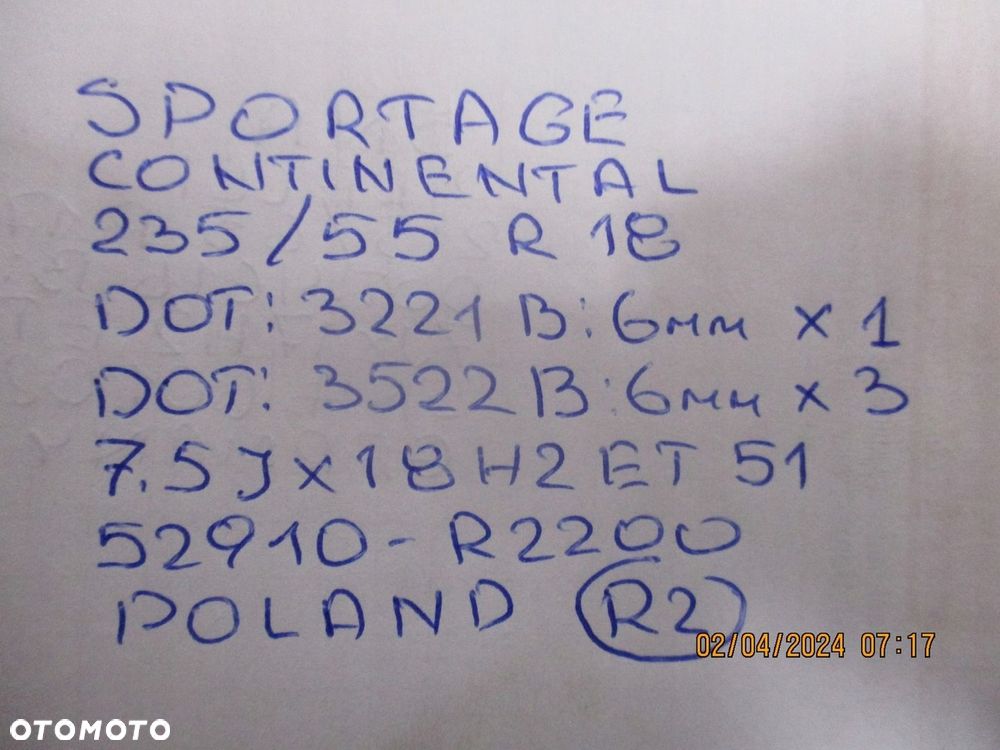 SPORTAGE
CONTINENTAL
235/55 R 18
DOT: 3221 B:6мм x 1
DOT: 3522 B:6мм x 3
7.5Jx18H2ET 51
52910-R2200
POLAND R2
02/04/2024 07:17
OTOMOTO